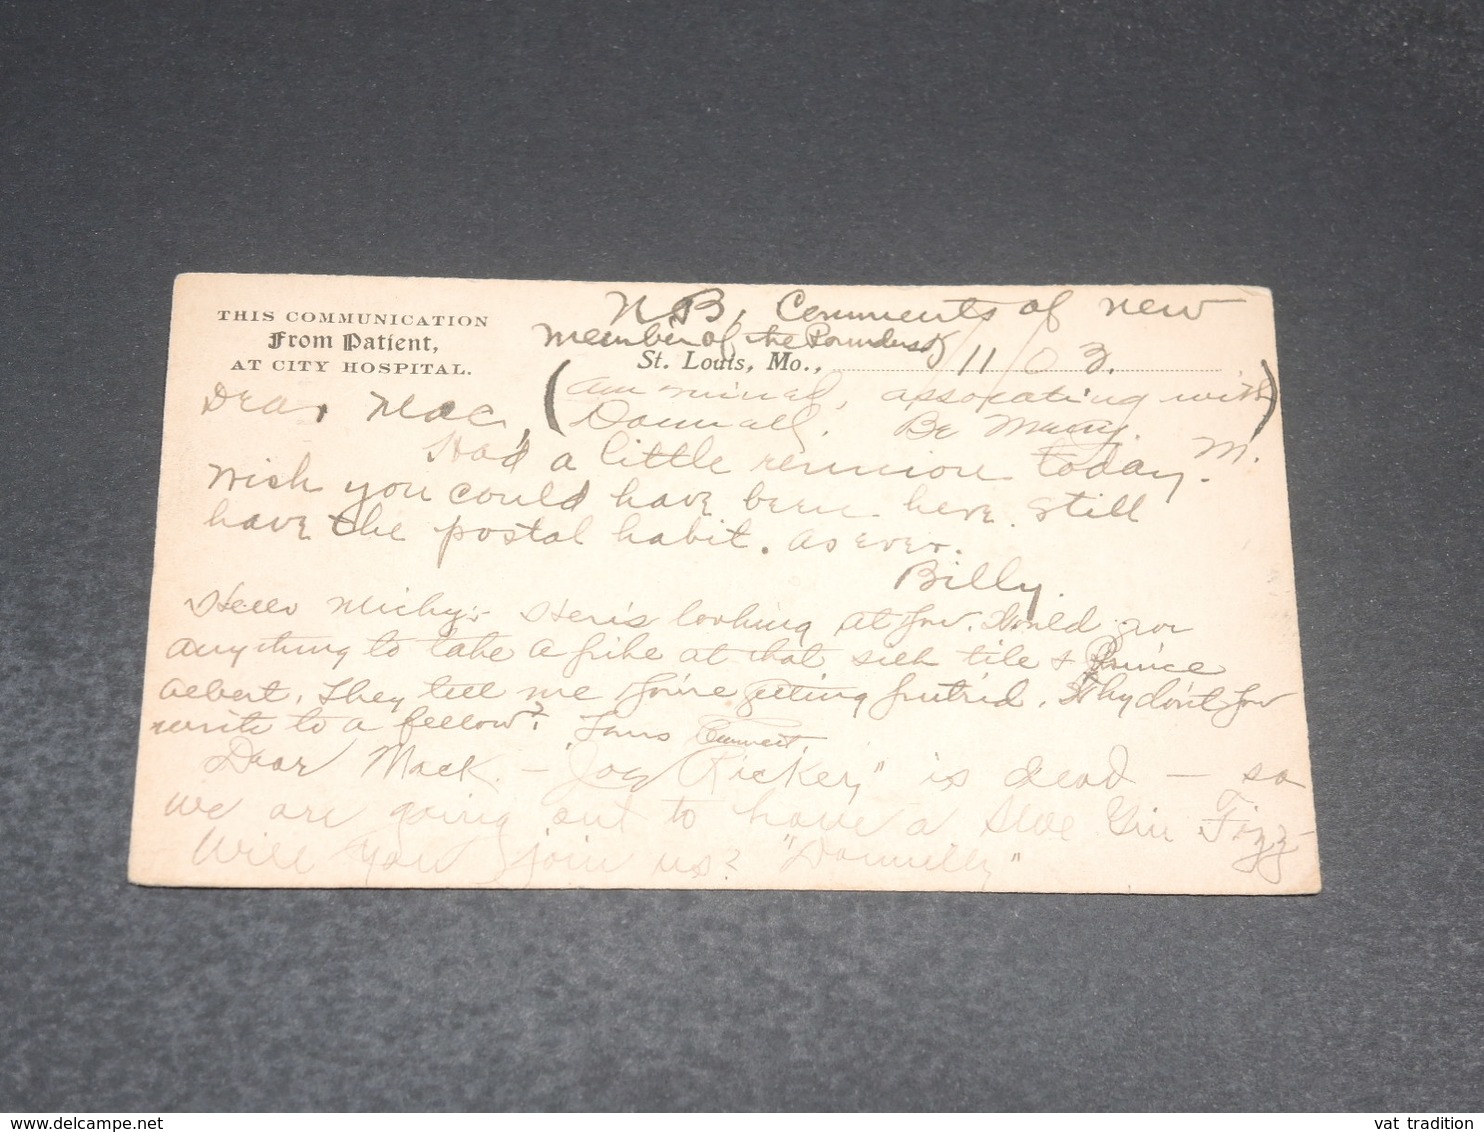 THIS COMMUNICATION
From Patient,
AT CITY HOSPITAL.
N.B. Comments of new
member of the
St. Louis, Mo., 5/11/03.
Dear Mac,
(am mined, assocating with
Donnall. Be Mary M.)
Had a little reunion today.
Wish you could have been here. Still
have the postal habit. As ever.
Billy.
Hello Micky:- Her's looking at you. Would giv
anything to take a pike at that silk tile & Prince
Albert. They tell me you're getting putrid. Why don't you
write to a fellow? Yours Emmet.
Dear Mack. — "Joe Rickey" is dead — so
we are going out to have a Sloe Gin Fizz
Will you join us? "Donnelly"
vat tradition
www.delcampe.net